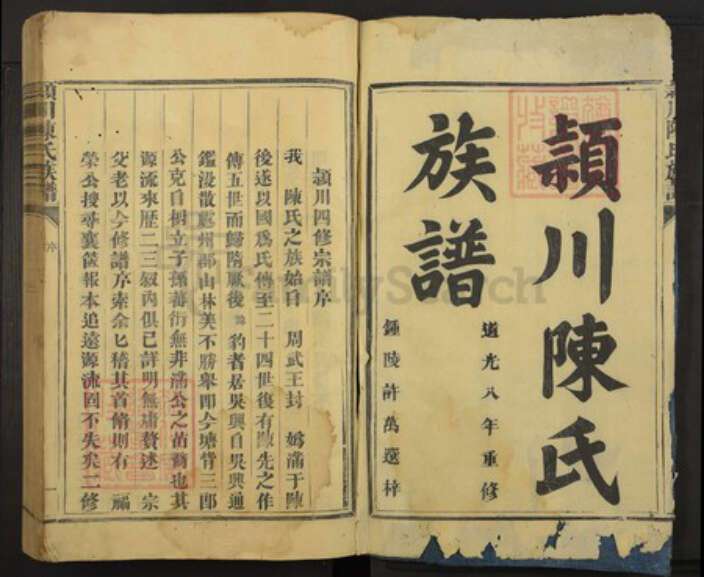 頴川陳氏
族譜
道光八年重修
鍾陵許萬選梓
頴川四修宗譜序
我 陳氏之族始自 周武王封 媯滿于陳
後遂以國為氏傳至二十四世後有陳先之作
傳五世而歸隋厥後 豹者居吳興自吳興通
鑑沒散處州郡山林美不勝舉即今塘背三郎
公克自樹立子孫蕃衍無非滿公之苗裔也其
源流來歷一二三敘內俱已詳明無庸贅述 宗
父老以今修譜序索余匕稽其首脩則有 福
榮公搜尋襄篋報本追遠源流固不失矣二修
頴川陳氏族譜
序
FamilySearch